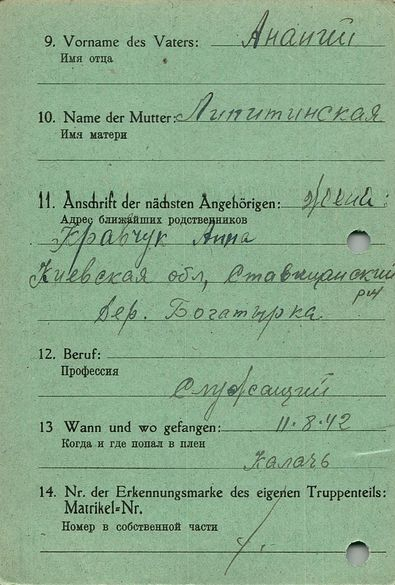 9. Vorname des Vaters: Ананий
Имя отца
10. Name der Mutter: Липитинская
Имя матери
11. Anschrift der nächsten Angehörigen: жена:
Адрес ближайших родственников
Кравчук Анна
Киевская обл, Ставищанский
р-н
дер. Богатырка
12. Beruf:
Профессия
Служащий
13 Wann und wo gefangen: 11.8.42
Когда и где попал в плен
Калачь
14. Nr. der Erkennungsmarke des eigenen Truppenteils:
Matrikel-Nr.
Номер в собственной части